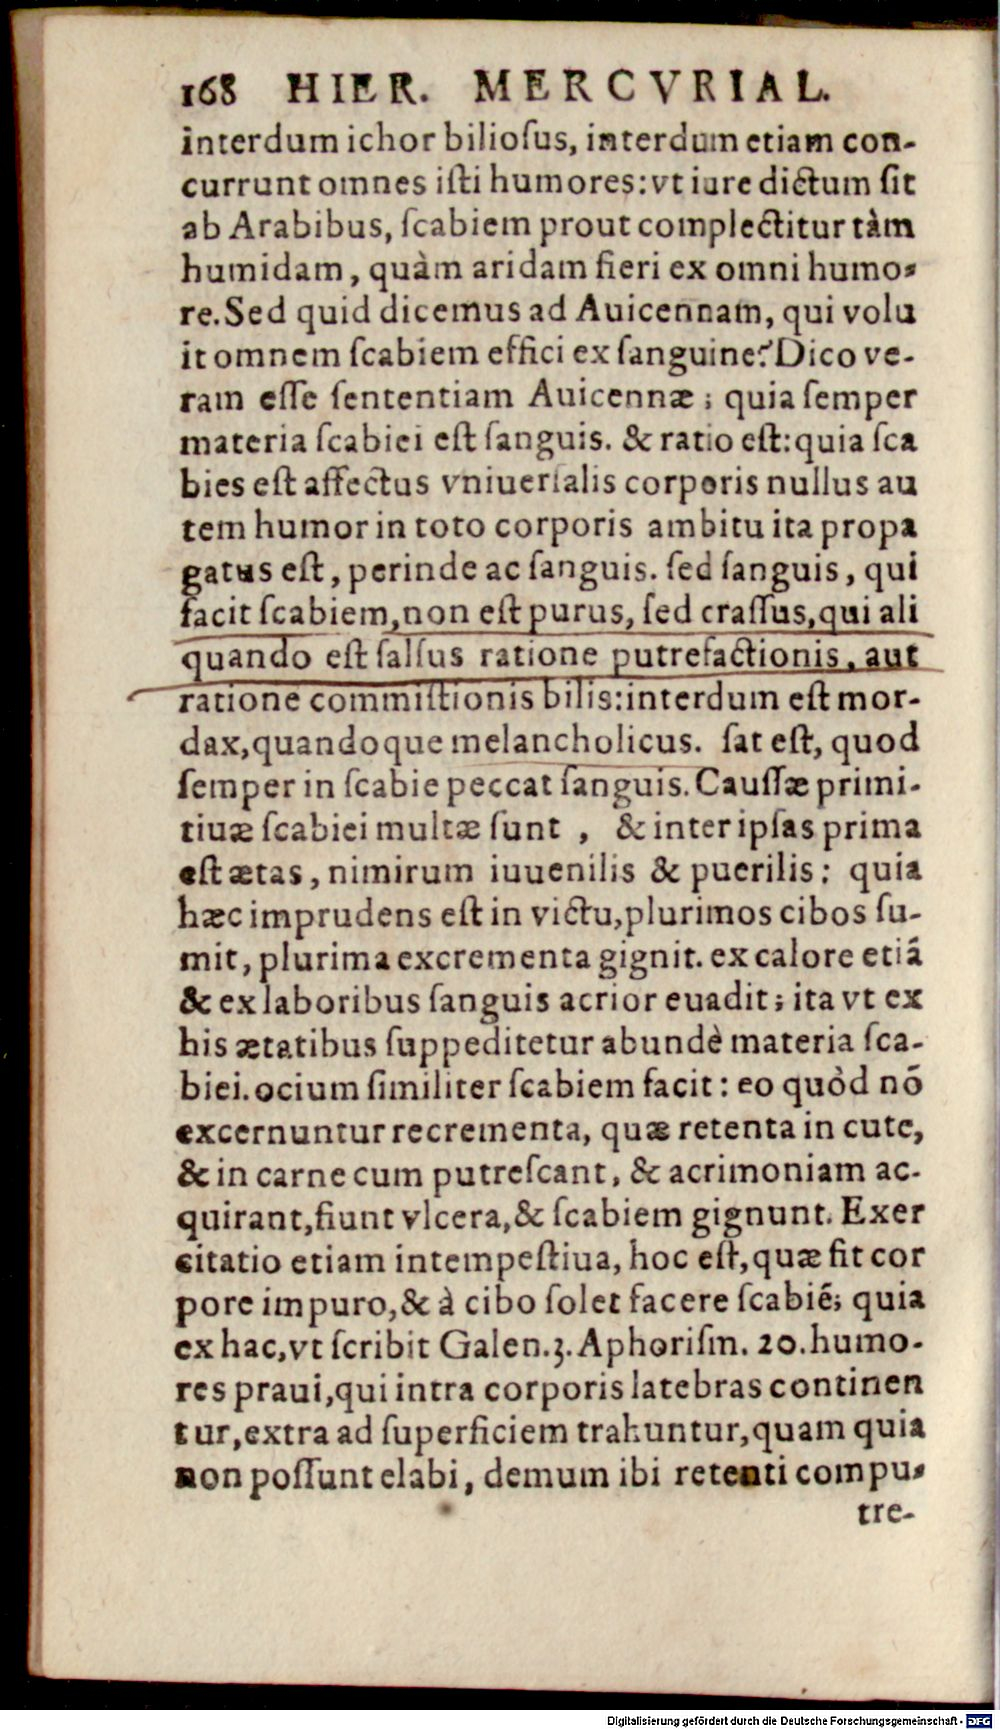 168 HIER. MERCVRIAL.
interdum ichor bilioſus, interdum etiam con-
currunt omnes iſti humores: vt iure dictum ſit
ab Arabibus, ſcabiem prout complectitur tàm
humidam, quàm aridam fieri ex omni humo-
re. Sed quid dicemus ad Auicennam, qui volu
it omnem ſcabiem effici ex ſanguine? Dico ve-
ram eſſe ſententiam Auicennæ; quia ſemper
materia ſcabiei eſt ſanguis. & ratio eſt: quia ſca
bies eſt affectus vniuerſalis corporis nullus au
tem humor in toto corporis ambitu ita propa
gatus eſt, perinde ac ſanguis. ſed ſanguis, qui
facit ſcabiem, non eſt purus, ſed craſſus, qui ali
quando eſt ſalſus ratione putrefactionis, aut
ratione commiſtionis bilis: interdum eſt mor-
dax, quandoque melancholicus. ſat eſt, quod
ſemper in ſcabie peccat ſanguis. Cauſſæ primi-
tiuæ ſcabiei multæ ſunt , & inter ipſas prima
eſt ætas, nimirum iuuenilis & puerilis: quia
hæc imprudens eſt in victu, plurimos cibos ſu-
mit, plurima excrementa gignit. ex calore etiā
& ex laboribus ſanguis acrior euadit; ita vt ex
his ætatibus ſuppeditetur abundè materia ſca-
biei. ocium ſimiliter ſcabiem facit: eo quòd nō
excernuntur recrementa, quæ retenta in cute,
& in carne cum putreſcant, & acrimoniam ac-
quirant, fiunt vlcera, & ſcabiem gignunt. Exer
citatio etiam intempeſtiua, hoc eſt, quæ fit cor
pore impuro, & à cibo ſolet facere ſcabiē; quia
ex hac, vt ſcribit Galen. 3. Aphoriſm. 20. humo-
res praui, qui intra corporis latebras continen
tur, extra ad ſuperficiem trahuntur, quam quia
non poſſunt elabi, demum ibi retenti compu-
tre-
Digitalisierung gefördert durch die Deutsche Forschungsgemeinschaft - DFG